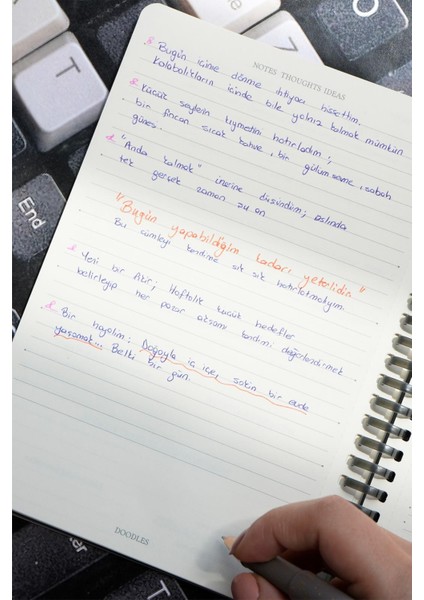 NOTES THOUGHTS IDEAS
Bugün içime dönme ihtiyacı hissettim.
Kalabalıkların içinde bile yalnız kalmak mümkün
Küçük şeylerin kıymetini hatırladım;
bir fincan sıcak kahve, bir gülümseme, sabah
güneşi.
"Anda kalmak" üzerine düşündüm; aslında
tek gerçek zaman şu an
"Bugün yapabildiğim kadarı yeterlidir"
Bu cümleyi kendime sık sık hatırlatmalıyım.
Yeni bir Fikir; Haftalık küçük hedefler
belirleyip her pazar akşamı kendimi değerlendirmek
Bir hayalim; Doğayla iç içe, sakin bir evde
yaşamak... Belki bir gün.
DOODLES
T
T
End